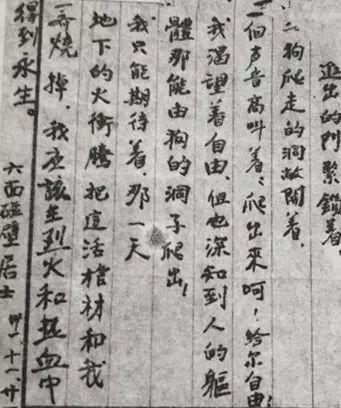 進出的門緊鎖着，
二狗爬走的洞敞開着，
一個声音高叫着：爬出來呵！給尔自由！
我渴望着自由，但也深知到人的軀
體那能由狗的洞子爬出！
我只能期待着，那一天
地下的火衝騰把這活棺材和我
一齊燒掉，我应該在烈火和热血中
得到永生。
六面碰壁居士 卅一.十一.廿